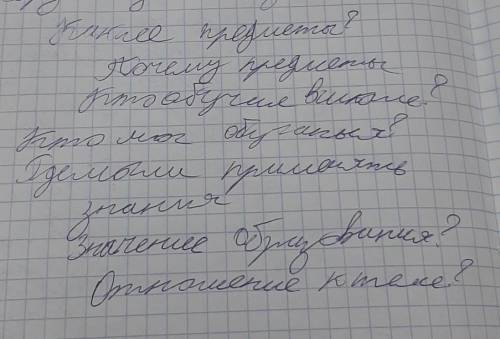 Какие предметы?
Почему предметы
Кто обучал в школе?
Кто мог обучаться?
Где могли применять
знания
Значение образования?
Отношение к теме?